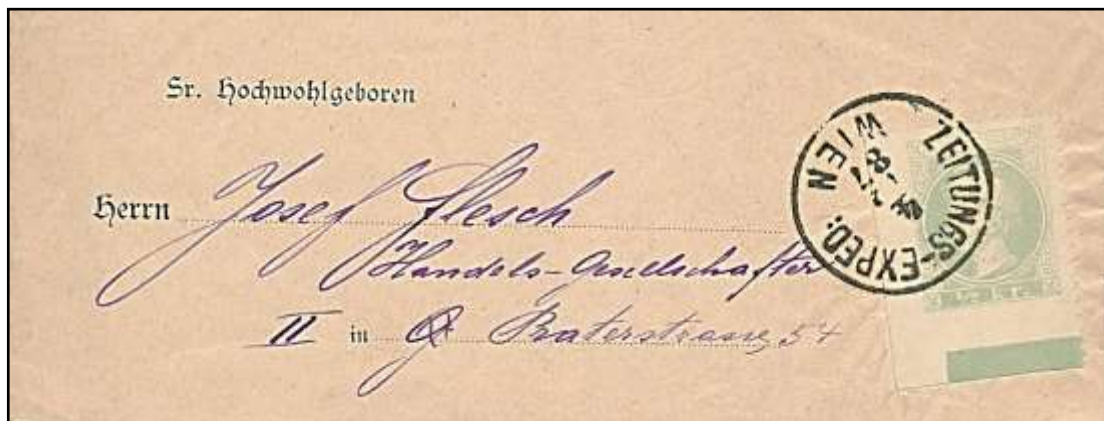 Sr. Hochwohlgeboren
Herrn Josef Flesch
Handels-Gesellschafter
II in Praterstrasse, 54
ZEITUNGS-EXPED:
WIEN